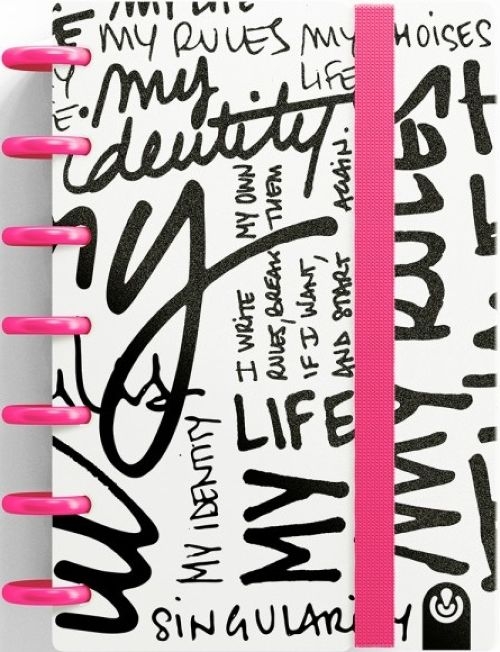 MY LIFE
MY RULES MY
LIFE
my
identity
my
I WRITE MY OWN
RULES, BREAK THEM
IF I WANT,
AND START AGAIN.
LIFE
MY
MY IDENTITY
MY RULES
SINGULARITY